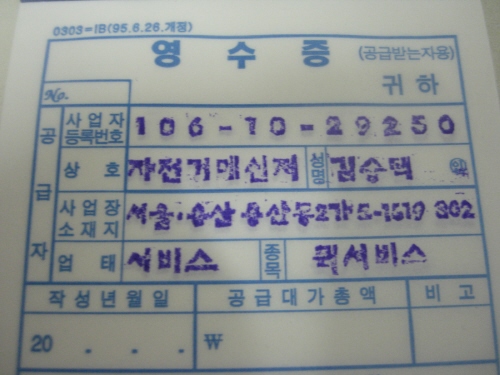 0303-1B(95.6.26.개정)
영 수 증 (공급받는자용)
No. 귀 하
공 급 자
사업자 등록번호 106-10-29250
상 호 자전거메신저 성명 김승택 인
사업장 소재지 서울.용산 용산동2가 5-1619 302
업 태 서비스 종목 퀵서비스
작성년월일 공급대가총액 비 고
20 . . . ₩